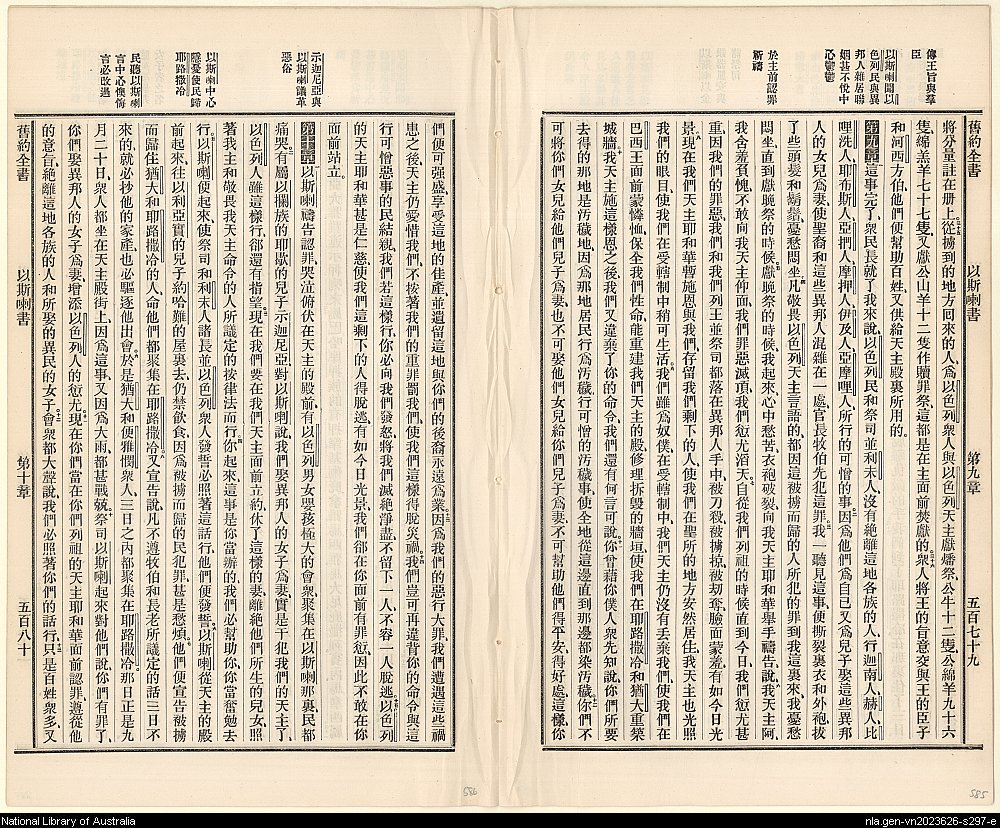 舊約全書 以斯喇書 第九章 五百七十九
傳王旨與羣
臣
以斯喇聞以
色列民與異
邦人雜居聯
姻甚不悅中
心鬱鬱
於主前認罪
祈禱
將分量註在册上從擄到的地方囘來的人爲以色列衆人與以色列天主獻燔祭公牛十二隻公綿羊九十六
隻綿羔羊七十七隻又獻公山羊十二隻作贖罪祭這都是在主面前焚獻的衆人將王的旨意交與王的臣子
和河西方伯他們便幫助百姓又供給天主殿裏所用的
第九章這事完了衆民長就了我來說以色列民和祭司並利未人沒有絕離這地各族的人行迦南人赫人比
哩洗人耶布斯人亞捫人摩押人伊及人亞摩哩人所行的可憎的事因爲他們爲自己又爲兒子娶這些異邦
人的女兒爲妻使聖裔和這些異邦人混雜在一處官長牧伯先犯這罪我一聽見這事便撕裂裏衣和外袍拔
了些頭髮和鬍鬚憂愁悶坐凡敬畏以色列天主言語的都因這被擄而歸的人所犯的罪到我這裏來我憂愁
悶坐直到獻晚祭的時候獻晚祭的時候我起來心中愁苦衣袍破裂向我天主耶和華舉手禱告說我天主阿
我含羞負愧不敢向我天主仰面我們罪惡滅頂我們愆尤滔天自從我們列祖的時候直到今日我們愆尤甚
重因我們的罪惡我們和我們列王並祭司都落在異邦人手中被刀殺被擄掠被刧奪臉面蒙羞有如今日光
景現在我們天主耶和華暫施恩與我們存留我們剩下的人使我們在聖所的地方安然居住我天主也光照
我們的眼目使我們在受轄制中稍可生活我們雖爲奴僕在受轄制中我們天主仍沒有丟棄我們使我們在
巴西王面前蒙憐恤保全我們性命能重建我們天主的殿修理拆毁的牆垣使我們在耶路撒冷和猶大重築
城牆我天主施這樣恩之後我們又違棄了你的命令我們還有何言可說你曾藉你僕人衆先知說你們所要
去得的那地是汚穢地因爲那地居民行爲汚穢行可憎的汚穢事使全地從這邊直到那邊都染汚穢你們不
可將你們女兒給他們兒子爲妻也不可娶他們女兒給你們兒子爲妻不可幫助他們得平安得好處這樣你
示迦尼亞與
以斯喇議革
惡俗
以斯喇中心
懸憂使民歸
耶路撒冷
民聽以斯喇
言中心懊悔
言必改過
們便可强盛享受這地的佳產並遺留這地與你們的後裔永遠爲業因爲我們的惡行大罪我們遭遇這些禍
患之後天主仍愛惜我們不按著我們的重罪罰我們使我們這樣得脫災禍我們豈可再違背你的命令與這
行可憎惡事的民結親我們若這樣行你必向我們發怒將我們滅絕淨盡不留下一人不容一人脫逃以色列
的天主耶和華甚是仁慈使我們這剩下的人得脫逃有如今日光景我們卻在你面前有罪愆因此不敢在你
面前站立
第十章以斯喇禱告認罪哭泣俯伏在天主的殿前有以色列男女嬰孩極大的會衆聚集在以斯喇那裏民都
痛哭有屬以攔族的耶歇的兒子示迦尼亞對以斯喇說我們娶異邦人的女子爲妻實是干犯我們的天主了
以色列人雖這樣行卻還有指望現在我們要在我們天主面前立約休了這樣的妻離絕他們所生的兒女照
著我主和敬畏我天主命令的人所議定的按律法而行你起來這事是你當辦的我們必幫助你你當奮勉去
行以斯喇便起來使祭司和利未人諸長並以色列衆人發誓必照著這話行他們便發誓以斯喇從天主的殿
前起來往以利亞實的兒子約哈難的屋裏去仍禁飲食因爲被擄而歸的民犯罪甚是愁煩他們便宣告被擄
而歸住猶大和耶路撒冷的人命他們都聚集在耶路撒冷又宣告說凡不遵牧伯和長老所議定的話三日不
來的就必抄他的家產也必驅逐他出會於是猶大和便雅憫衆人三日之內都聚集在耶路撒冷那日正是九
月二十日衆人都坐在天主殿街上因爲這事又因爲大雨都甚戰兢祭司以斯喇起來對他們說你們有罪了
你們娶異邦人的女子爲妻增添以色列人的愆尤現在你們當在你們列祖的天主耶和華面前認罪遵從他
的意旨絕離這地各族的人和所娶的異民的女子會衆都大聲說我們必照著你們的話行只是百姓衆多又
舊約全書 以斯喇書 第十章 五百八十
586
585
National Library of Australia
nla.gen-vn2023626-s297-e